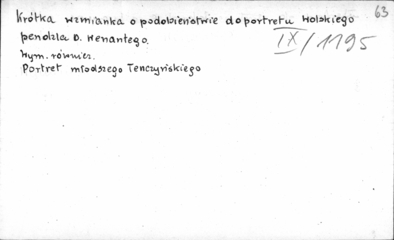 63
Krótka wzmianka o podobieństwie do portretu Wolskiego
pendzla D. Henantego.
IX/1195
Wym. również.
Portret młodszego Tenczyńskiego